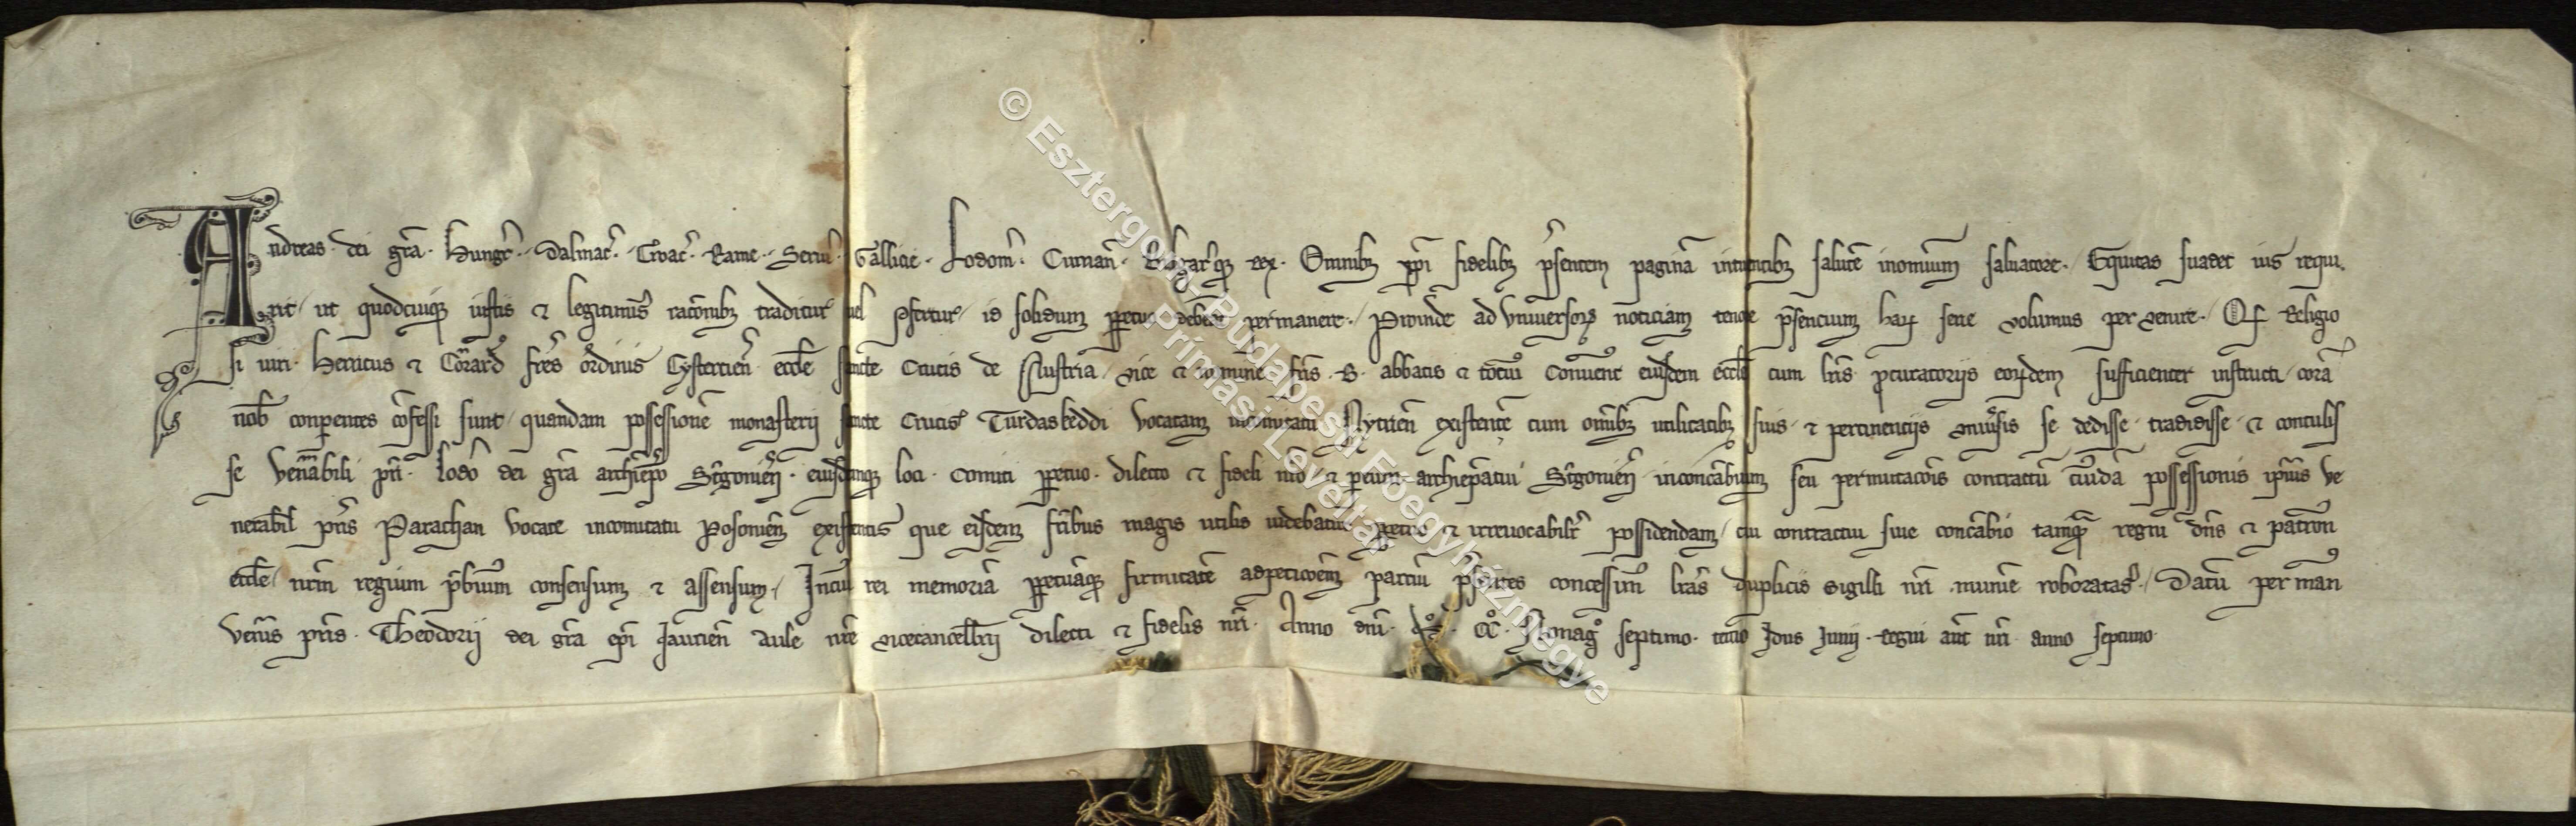 Andreas dei gra͞. Hungr͛. Dalmac͛. Croac͛. Rame. Seruı͛. Gallicie. Lodom͛. Cuman͞. Bulgar͛q rex. Omnib xp͞i fidelib p͛sentem pagina͞ intuentib salute͞ in om͞ium saluatore. Equitas suadet ius requi
rit ut quodcu͞q iustis et legitimis rac͞onib traditur uel p̱stitur id solidum ꝑpetuo debeat permanere. Proinde ad vniuersoꝝ noticiam tenore p͛sencium harꝝ serie volumus peruenire. Qd Religio
si uiri. Henricus et Co͞rard fr͞es ordinis Cystercien͞ eccl͞e sancte Crucis de Austria vice et no͞mine fr͞is .B. abbatis et tociu᷒ Conuent eiusdem eccl͞e cum lr͞is ꝓcuratoriis eorꝝdem sufficienter instructi cora͞
nob conparentes co͞fessi sunt quandam possessione͞ monasterii sancte Crucis Turdaskeddi vocatam in comitatu Nytrien͞ existente͞ cum om͞ib utilitatib suis et pertinenciis vniu͛sis se dedisse tradidisse et contulis
se ven͞abili pr͞i. Lodo͛ dei gra͞ archiep͞o Strigonien͞. eiusdemq loci. comiti ꝑpetuo. dilecto et fideli nr͞o et ꝑ eum archiep͞atui Strigonien͞ in conca͞bium seu permutac͞ois contractu͞ cuiusda͞ possessionis ip͞ius ve
nerabil pr͞is Parachan vocate in comitatu Posonien͞ existentis que eisdem fr͞ibus magis utilis uidebatur ꝑpetuo et irreuocabilit͛ possidendam cui contractui siue conca͞bio tamq͞ regni dn͞s et patron
eccl͞e nr͞m regium p͛buim᷒ consensum et assensum. In cui᷒ rei memoria͞ ꝑpetua͞q firmitate͞ ad petic͞oem parciu͞ p͛sentes concessim᷒ lr͞as duplicis sigilli nr͞i munim͞e roboratas. Datu͞ per man᷒
Ven͞ius pr͞is. Theodorii dei gra͞ ep͞i Jaurien͞ aule nr͞e vicecancell͞rii dilecti et fidelis nr͞i. Anno dn͞i. Mͦ. CCͦ. Nonagͦ septimo. tercio Idus Junii. Regni aut͞ nr͞i anno septimo.
© Esztergom-Budapesti Főegyházmegye
Prímási Levéltár